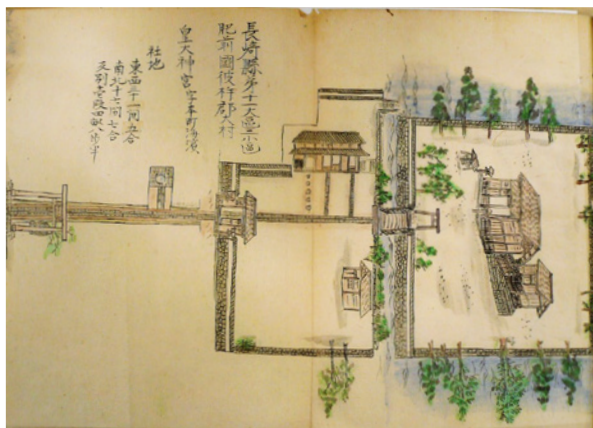 長崎縣第十一大區二小區
肥前國彼杵郡大村
皇大神宮字本町海濱
社地
東西三十一間五合
南北十七間七合
反別壱段四畝八歩半